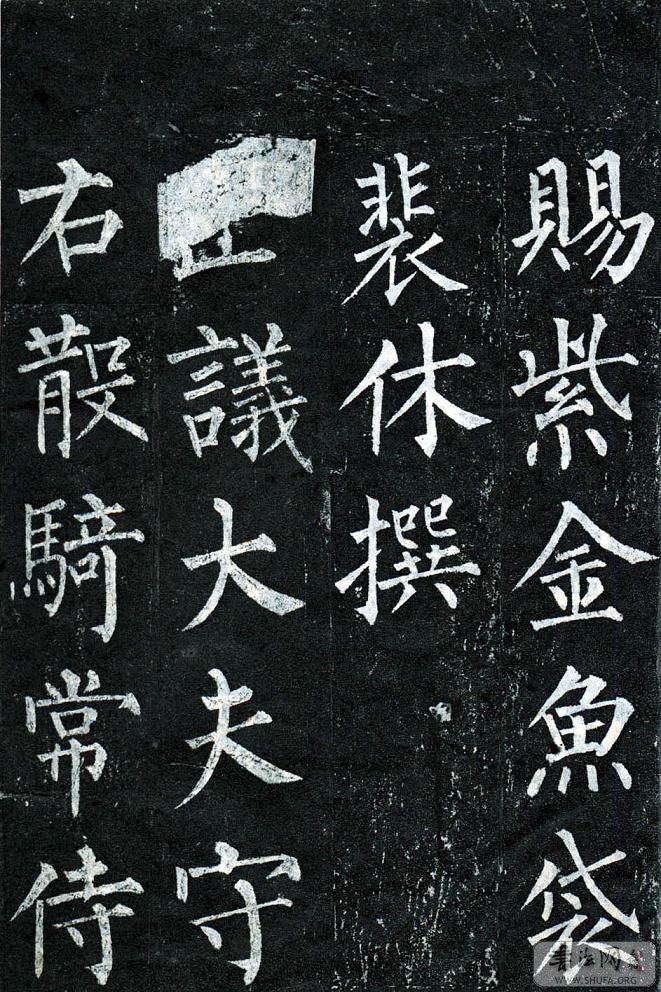 賜紫金魚袋
裴休撰
正議大夫守
右散騎常侍
書法网
WWW.SHUFA.ORG